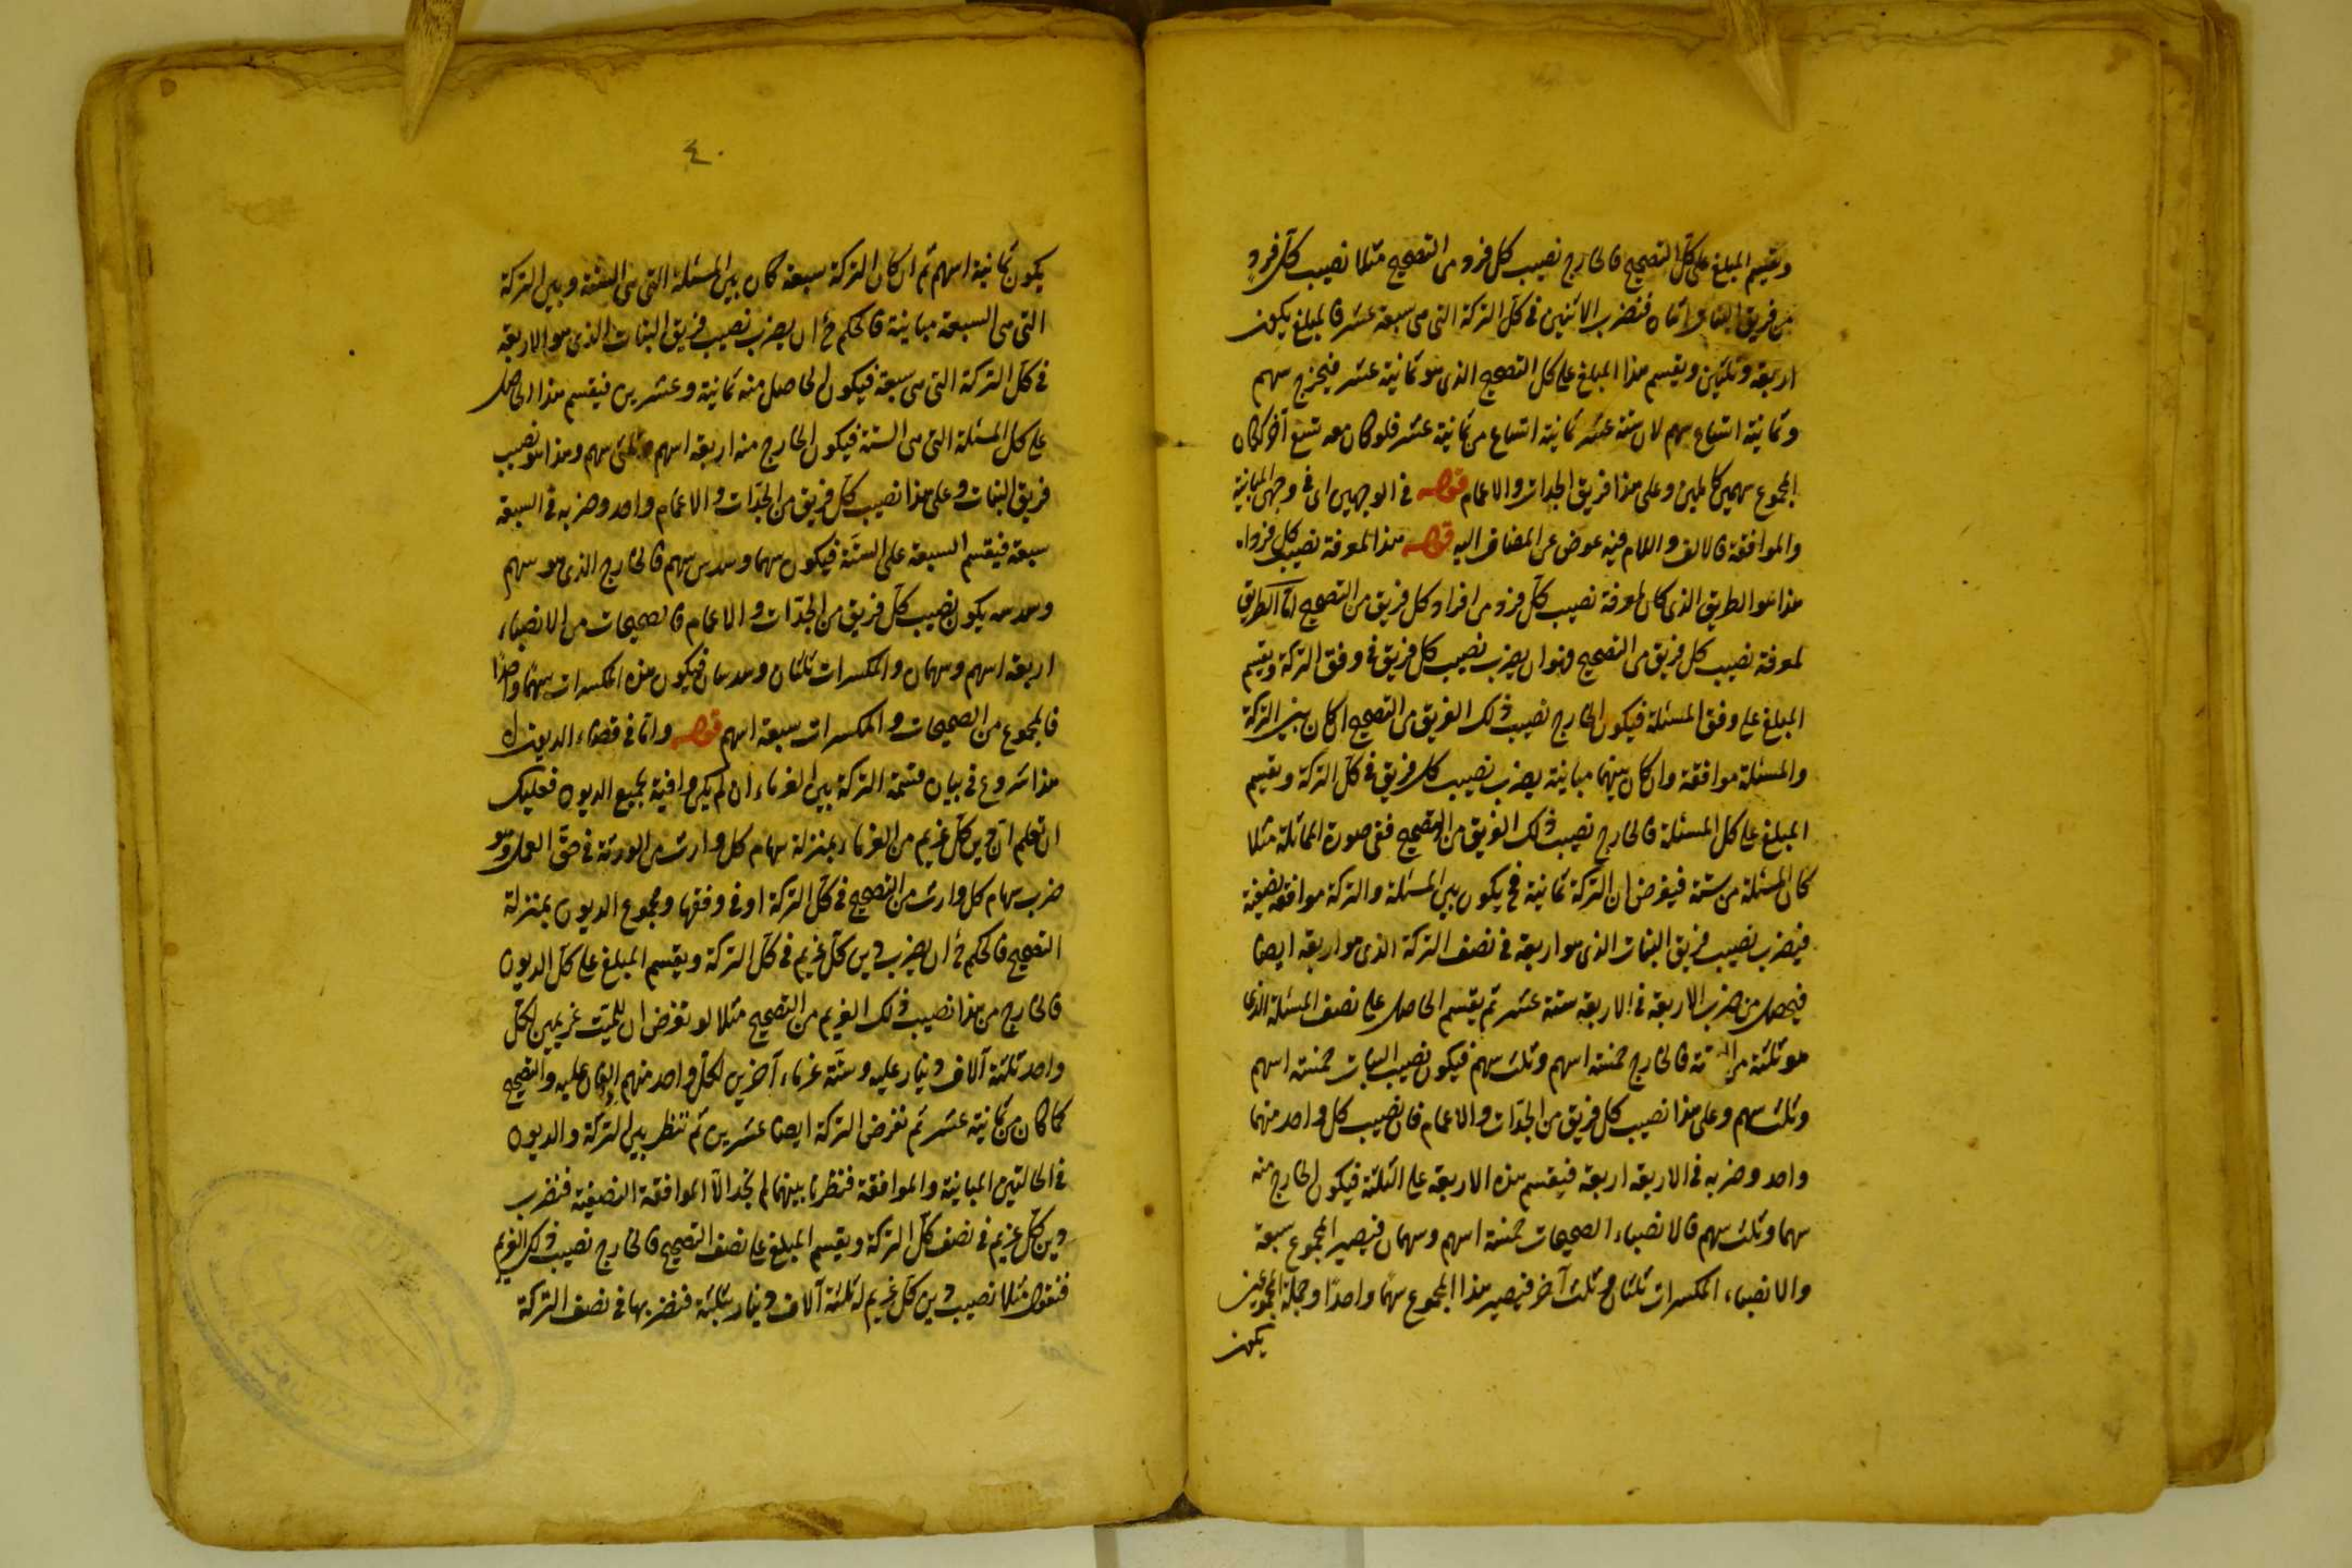 ويقسم المبلغ على كل التصحيح فالخارج نصيب كل فرد من التصحيح مثلا نصيب كل فرد
من فريق البنات اثنان فنضرب الاثنين في كل التركة التي هي سبعة عشر فالمبلغ يكون
اربعة وثلثين ويقسم هذا المبلغ على كل التصحيح الذي هو ثمانية عشر فيخرج سهم
وثمانية اتساع سهم لان ستة عشر ثمانية اتساع من ثمانية عشر فلو كان معه تسع آخر لكان
المجموع سهمين كاملين وعلى هذا فريق الجدات والاعمام قوله في الوجهين اى في وجهى المباينة
والموافقة فالالف واللام فيه عوض عن المضاف اليه قوله هذا لمعرفة نصيب كل فرد اه
هذا هو الطريق الذي كان لمعرفة نصيب كل فرد من افراد كل فريق من التصحيح اما الطريق
لمعرفة نصيب كل فريق من التصحيح فهو ان يضرب نصيب كل فريق في وفق التركة ويقسم
المبلغ على وفق المسئلة فيكون الخارج نصيب ذلك الفريق من التصحيح ان كان بين التركة
والمسئلة موافقة وان كان بينهما مباينة يضرب نصيب كل فريق في كل التركة ويقسم
المبلغ على كل المسئلة فالخارج نصيب ذلك الفريق من التصحيح ففى صورة المماثلة مثلا
كان المسئلة من ستة فيفرض ان التركة ثمانية فح يكون بين المسئلة والتركة موافقة نصفية
فيضرب نصيب فريق البنات الذي هو اربعة في نصف التركة الذي هو اربعة ايضا
فيحصل من ضرب الاربعة في الاربعة ستة عشر ثم يقسم الحاصل على نصف المسئلة الذي
هو ثلثة من الستة فالخارج خمسة اسهم وثلث سهم فيكون نصيب البنات خمسة اسهم
وثلث سهم وعلى هذا نصيب كل فريق من الجدات والاعمام فان نصيب كل واحد منهما
واحد وضربه في الاربعة اربعة فيقسم هذه الاربعة على الثلثة فيكون الخارج منه
سهما وثلث سهم فالانصباء الصحيحات خمسة اسهم وسهمان فيصير المجموع سبعة
والانصباء المكسرات ثلثان وثلث آخر فيصير هذا المجموع سهما واحدا وجملة المجموعين
يكون
٤٠
يكون ثمانية اسهم ثم ان كان التركة سبعة كان بين المسئلة التي هي الستة وبين التركة
التي هي السبعة مباينة فالحكم ح ان يضرب نصيب فريق البنات الذي هو الاربعة
في كل التركة التي هي سبعة فيكون الحاصل منه ثمانية وعشرين فيقسم هذا الحاصل
على كل المسئلة التي هي الستة فيكون الخارج منه اربعة اسهم وثلثى سهم وهذا هو نصيب
فريق البنات وعلى هذا نصيب كل فريق من الجدات والاعمام واحد وضربه في السبعة
سبعة فيقسم السبعة على الستة فيكون سهما وسدس سهم فالخارج الذي هو سهم
وسدسه يكون نصيب كل فريق من الجدات والاعمام فالصحيحات من الانصباء
اربعة اسهم وسهمان والمكسرات ثلثان وسدسان فيكون هذه المكسرات سهما واحدا
فالمجموع من الصحيحات والمكسرات سبعة اسهم قوله واما في قضاء الديون اه
هذا شروع في بيان قسمة التركة بين الغرماء ان لم يكن وافية بجميع الديون فعليك
ان تعلم ان دين كل غريم من الغرماء بمنزلة سهام كل وارث من الورثة في حق العمل وهو
ضرب سهام كل وارث من التصحيح في كل التركة او في وفقها ومجموع الديون بمنزلة
التصحيح فالحكم ح ان يضرب دين كل غريم في كل التركة ويقسم المبلغ على كل الديون
فالخارج من هذا نصيب ذلك الغريم من التصحيح مثلا لو تفرض ان للميت غريمين لكل
واحد ثلثة آلاف دينار عليه وستة غرماء آخرين لكل واحد منهم الفان عليه والتصحيح
كما كان من ثمانية عشر ثم نفرض التركة ايضا عشرين ثم ننظر بين التركة والديون
في الحالتين المباينة والموافقة فنظرنا بينهما لم نجد الا الموافقة النصفية فنضرب
دين كل غريم في نصف كل التركة ويقسم المبلغ على نصف التصحيح فالخارج نصيب ذلك الغريم
فنقول مثلا نصيب دين كل غريم له ثلثة آلاف دينار ثلثة فنضربها في نصف التركة